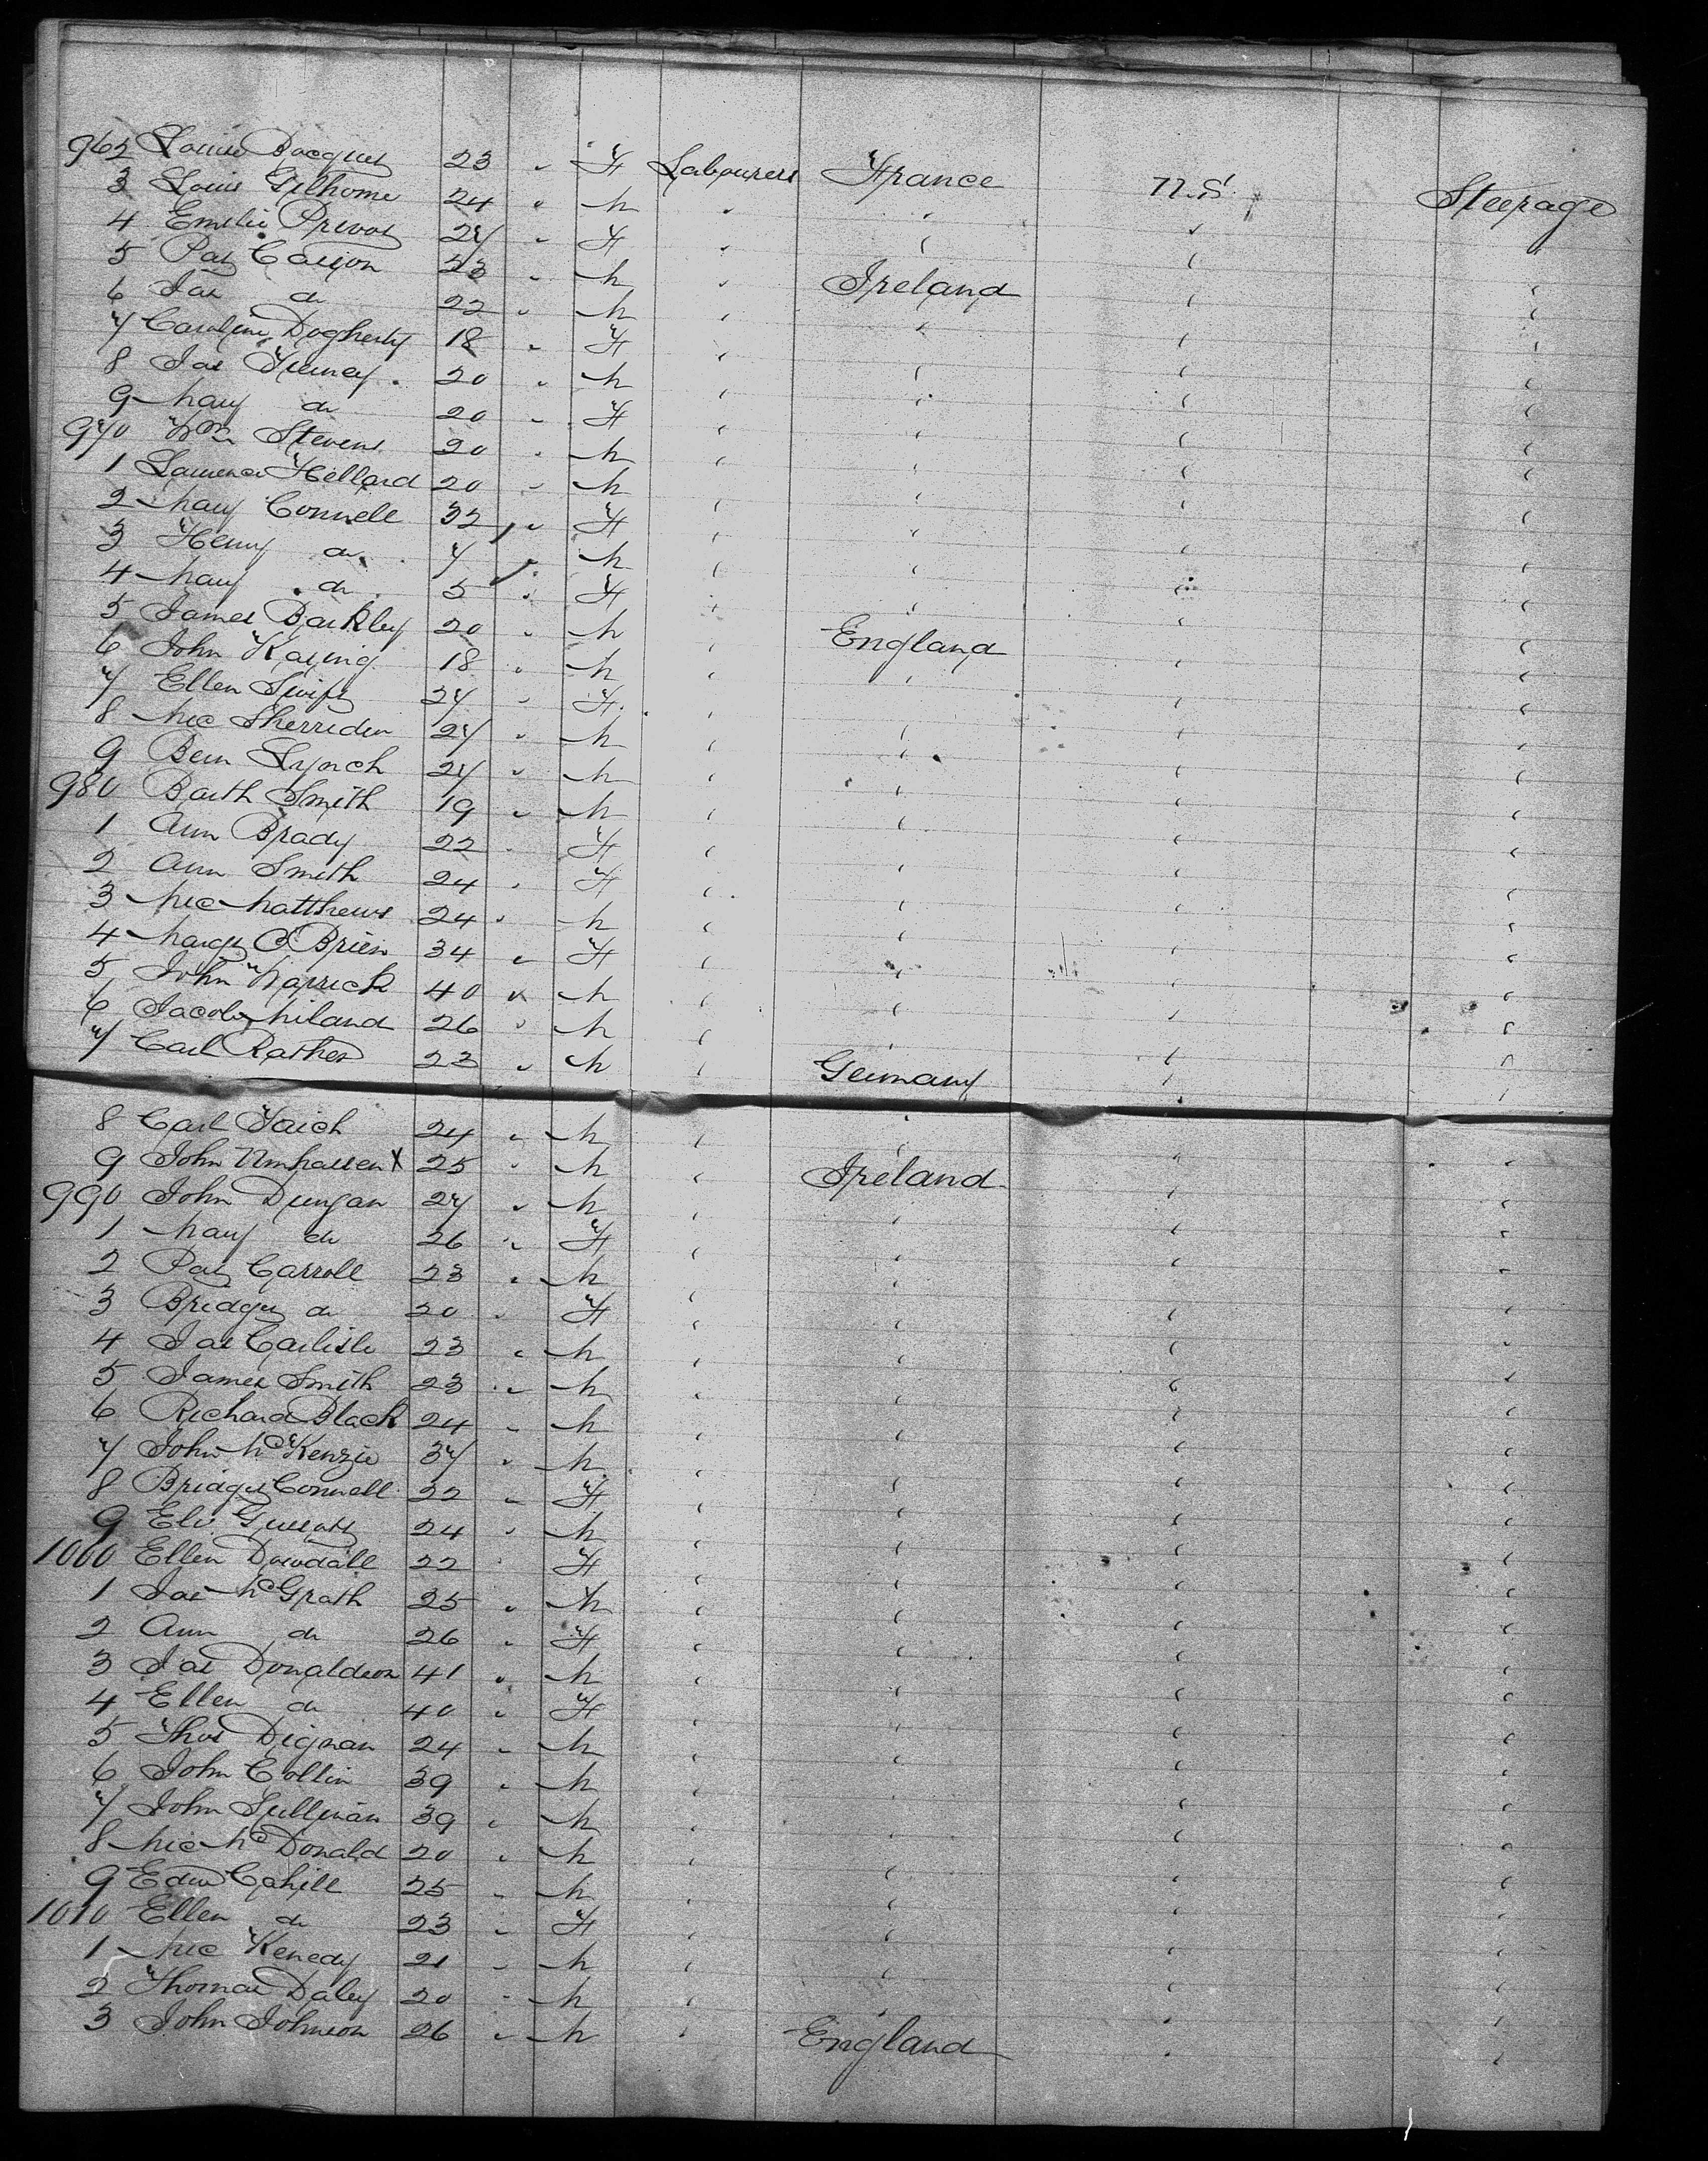 962 Louise Bacquet 23 " F Labourers France U.S. Steerage
3 Louis Gilhome 24 " M " " " "
4 Emilie Prevost 27 " F " " " "
5 Pat 23 " M " Ireland " "
6 Jas do 22 " M " " " "
7 Caroline Dogherty 18 " F " " " "
8 Jas 20 " M " " " "
9 Mary do 20 " F " " " "
970 Wm Stevens 20 " M " " " "
1 Laurence Hellard 20 " M " " " "
2 Mary Connell 32 " F " " " "
3 Henry do 7 " M " " " "
4 Mary do 5 " F " " " "
5 James Barkley 20 " M " England " "
6 John 18 " M " " " "
7 Ellen Swift 27 " F " " " "
8 Mic Sherriden 27 " M " " " "
9 Bern Lynch 27 " M " " " "
980 Barth Smith 19 " M " " " "
1 Ann Brady 22 " F " " " "
2 Ann Smith 24 " F " " " "
3 Mic Matthews 24 " M " " " "
4 Margt O'Brien 34 " F " " " "
5 John Warrick 40 " M " " " "
6 Jacob Miland 26 " M " " " "
7 Carl Rather 23 " M " Germany " "
8 Carl Faich 24 " M " " " "
9 John X 25 " M " Ireland " "
990 John Dungan 27 " M " " " "
1 Mary do 26 " F " " " "
2 Pat Carroll 23 " M " " " "
3 Bridget do 20 " F " " " "
4 Jas Carlisle 23 " M " " " "
5 James Smith 23 " M " " " "
6 Richard Black 24 " M " " " "
7 John McKenzie 37 " M " " " "
8 Bridget Connell 22 " F " " " "
9 24 " M " " " "
1000 Ellen Dowdall 22 " F " " " "
1 Jas McGrath 25 " M " " " "
2 Ann do 26 " F " " " "
3 Jas Donaldson 41 " M " " " "
4 Ellen do 40 " F " " " "
5 Thos Dignan 24 " M " " " "
6 John Collin 39 " M " " " "
7 John Sullivan 39 " M " " " "
8 Mic McDonald 20 " M " " " "
9 Edw Cahill 25 " M " " " "
1010 Ellen do 23 " F " " " "
1 Mic Kenedy 21 " M " " " "
2 Thomas Daley 20 " M " " " "
3 John Johnson 26 " M " England " "